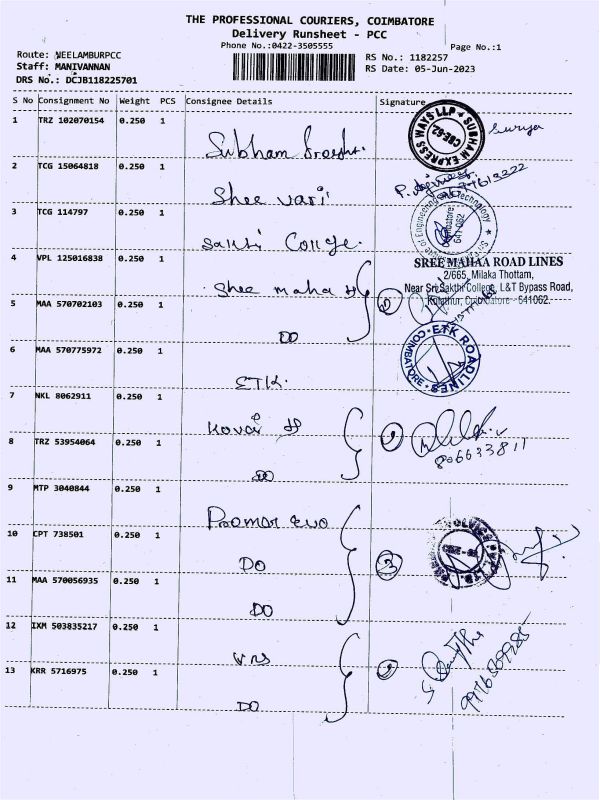 THE PROFESSIONAL COURIERS, COIMBATORE
Delivery Runsheet - PCC
Phone No.:0422-3505555
Page No.:1
Route: NEELAMBURPCC
Staff: MANIVANNAN
DRS No.: DCJB118225701
RS No.: 1182257
RS Date: 05-Jun-2023
S No Consignment No Weight PCS Consignee Details Signature
1 TRZ 102070154 0.250 1
Subham
SUBHAM EXPRESS WAYS LLP
CBE-62
Surya
2 TCG 15064818 0.250 1
Shee vari
3 TCG 114797 0.250 1
Sakti College.
of Engineering and Technology
Coimbatore:
641 062
4 VPL 125016838 0.250 1
Shee maha
SREE MAHAA ROAD LINES
2/665, Milaka Thottam,
Near Sri Sakthi College, L&T Bypass Road,
Coimbatore - 641062.
5 MAA 570702103 0.250 1
DO
6 MAA 570775972 0.250 1
ETK.
ETK ROADLINES
COIMBATORE
7 NKL 8062911 0.250 1
Kovai
8 TRZ 53954064 0.250 1
DO
9 MTP 3040844 0.250 1
10 CPT 738501 0.250 1
DO
3
11 MAA 570056935 0.250 1
DO
12 IXM 503835217 0.250 1
VRS
13 KRR 5716975 0.250 1
DO